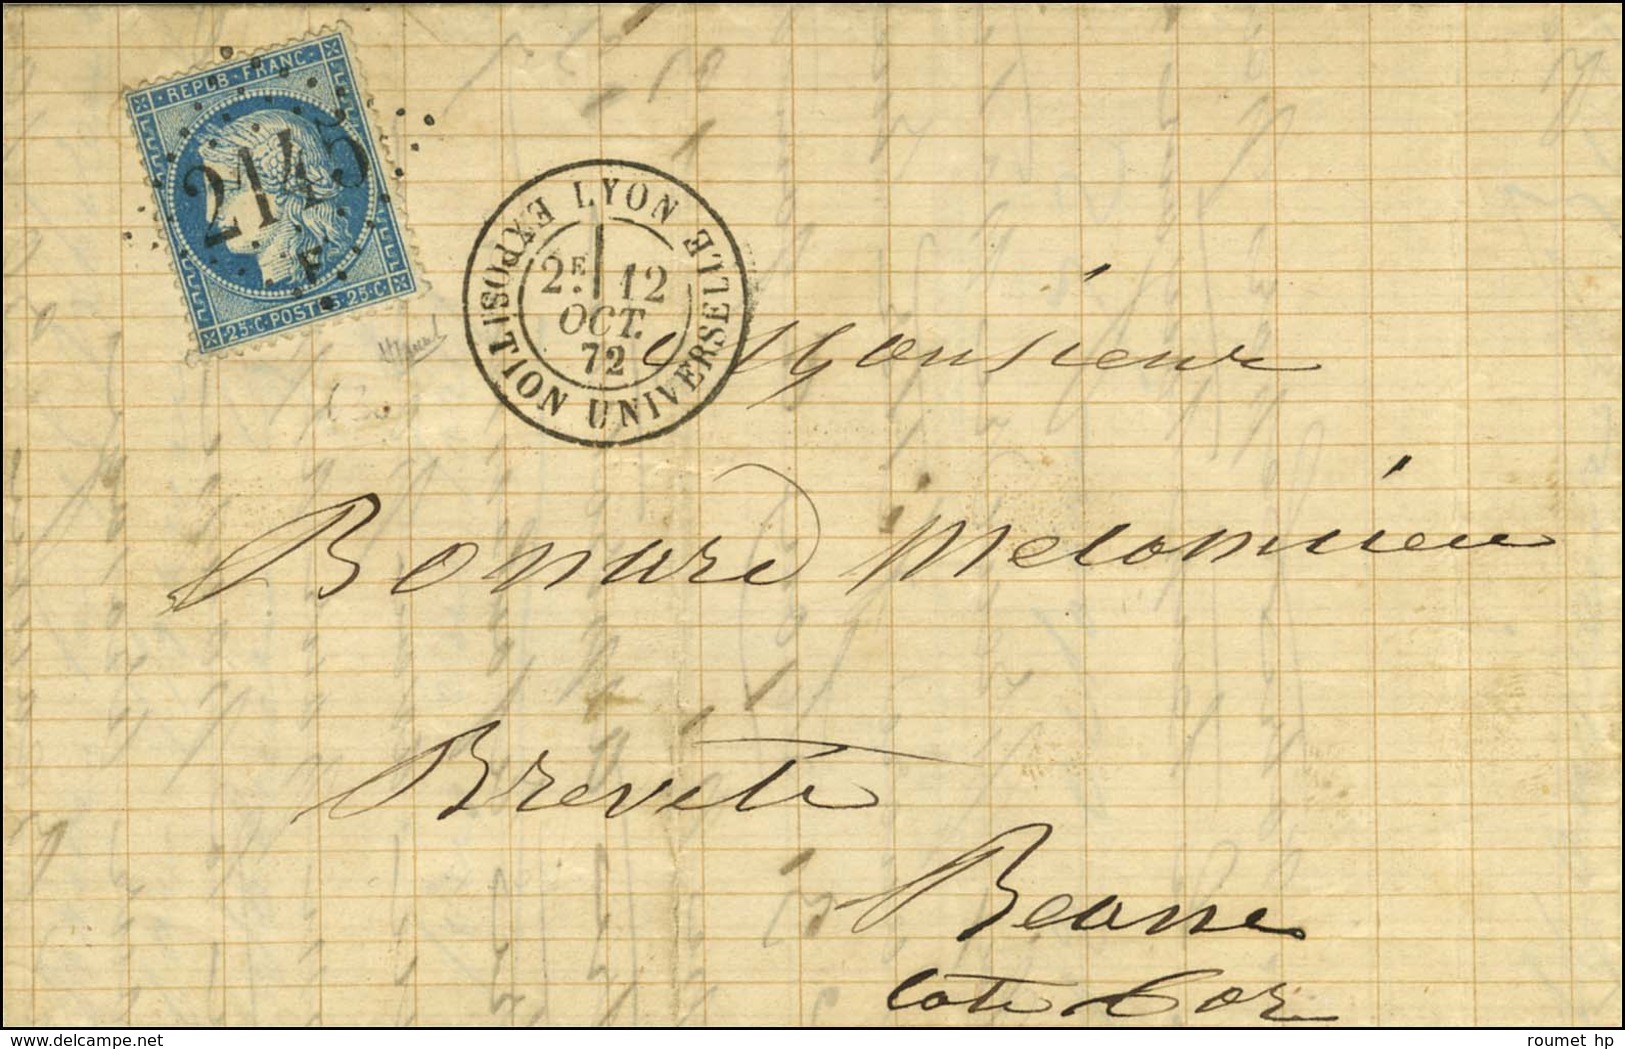 REPUB · FRANC ·
2145
E
· 25 · C · POSTES · 25 · C ·
LYON
EXPOSITION UNIVERSELLE
2E. 12
OCT.
72
Monsieur
Bonard
Brevete
Beaune
Cote d'or
delcampe.net
roumet hp